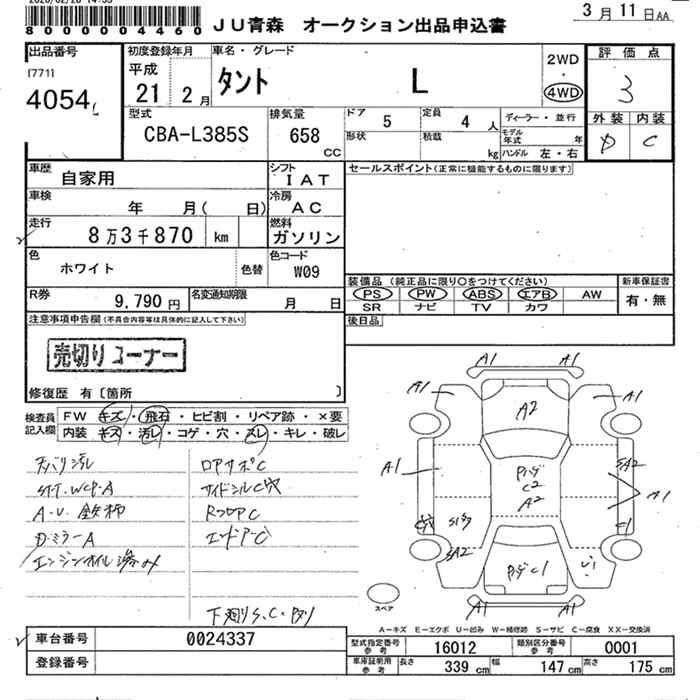 80000004460
JU青森 オークション出品申込書
3月11日AA
出品番号
[771]
4054
初度登録年月
平成
21 2月
車名・グレード
タント L
2WD
・
4WD
評価点
3
外装 内装
D C
型式
CBA-L385S
排気量
658
CC
ドア
5
定員
4 人
形状
積載
kg
ディーラー・並行
モデル年式 年
ハンドル 左・右
車歴
自家用
シフト
IAT
車検
年 月( 日)
冷房
AC
走行
8万3千870 km
燃料
ガソリン
色
ホワイト
色替
色コード
W09
R券
9,790 円
名変通知期限
月 日
セールスポイント(正常に機能するものに限ります)
装備品(純正品に限り〇をつけてください)
PS PW ABS エアB AW
SR ナビ TV カワ
新車保証書
有・無
後日品
注意事項申告欄(不具合内容等は具体的に記入して下さい)
売切りコーナー
修復歴 有〔箇所 〕
検査員記入欄
FW キズ・飛石・ヒビ割・リペア跡・×要
内装 キズ・汚レ・コゲ・穴・スレ・キレ・破レ
天バリ汚レ
ロアサポC
サイドシルC穴
RフロアC
D.ミラーA
エンドアC
エンジンオイル滲み
下廻りS.C.
A1 A1
A1 A1
A2
A1
C2
A2
SA2
A1
C1
SA2
C1
U1
A1 A1
スペア
A―キズ E―エクボ U―凹み W―補修跡 S―サビ C―腐食 XX―交換済
車台番号
0024337
登録番号
型式指定番号
参考
16012
類別区分番号
参考
0001
車庫証明用
参考
長さ 339 cm 幅 147 cm 高さ 175 cm